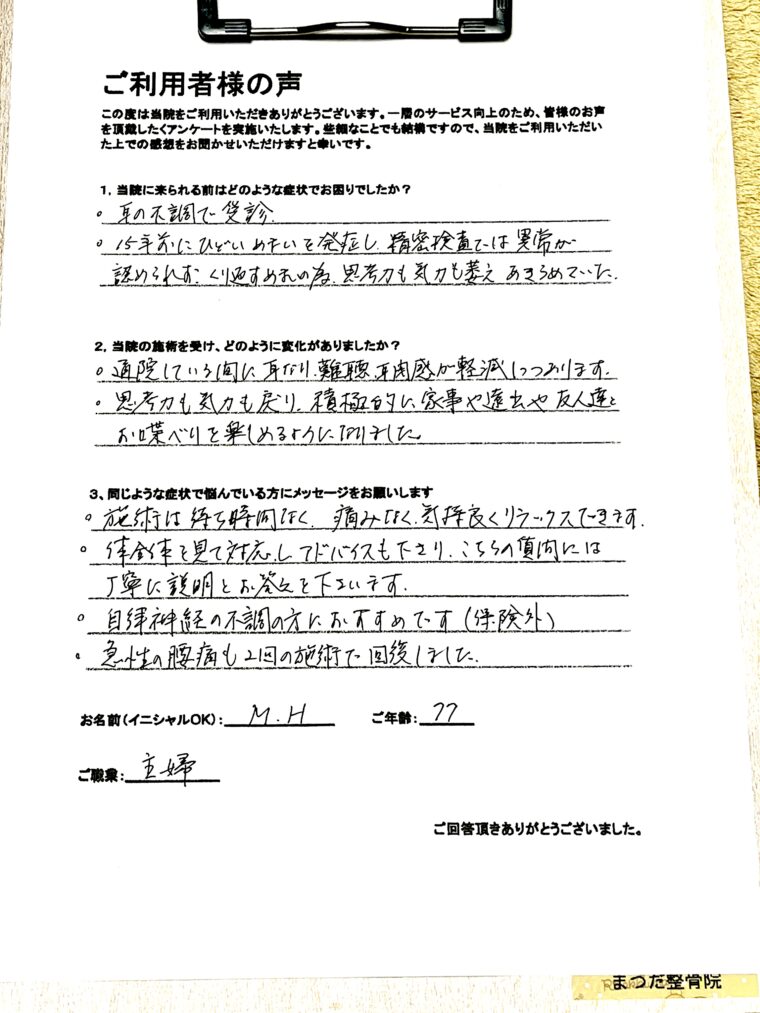 ご利用者様の声
この度は当院をご利用いただきありがとうございます。一層のサービス向上のため、皆様のお声
を頂戴したくアンケートを実施いたします。些細なことでも結構ですので、当院をご利用いただい
た上での感想をお聞かせいただけますと幸いです。
1, 当院に来られる前はどのような症状でお困りでしたか？
○ 耳の不調で受診.
○ 15年前にひどいめまいを発症し、精密検査では異常が
認められず、くり返すめまいの為、思考力も気力も萎え あきらめていた.
2, 当院の施術を受け、どのように変化がありましたか？
○ 通院している間に耳なり、難聴、耳閉感が軽減しつつあります.
○ 思考力も気力も戻り、積極的に家事や遠出や友人達と
お喋べりを楽しめるようになりました。
3、同じような症状で悩んでいる方にメッセージをお願いします
○ 施術は待ち時間なく、痛みなく、気持良くリラックスできます.
○ 体全体を見て対応しアドバイスも下さり、こちらの質問には
丁寧に説明とお答えを下さいます.
○ 自律神経の不調の方におすすめです(保険外)
○ 急性の腰痛も2回の施術で回復しました.
お名前(イニシャルOK): M.H ご年齢: 77
ご職業: 主婦
ご回答頂きありがとうございました。
まつだ整骨院